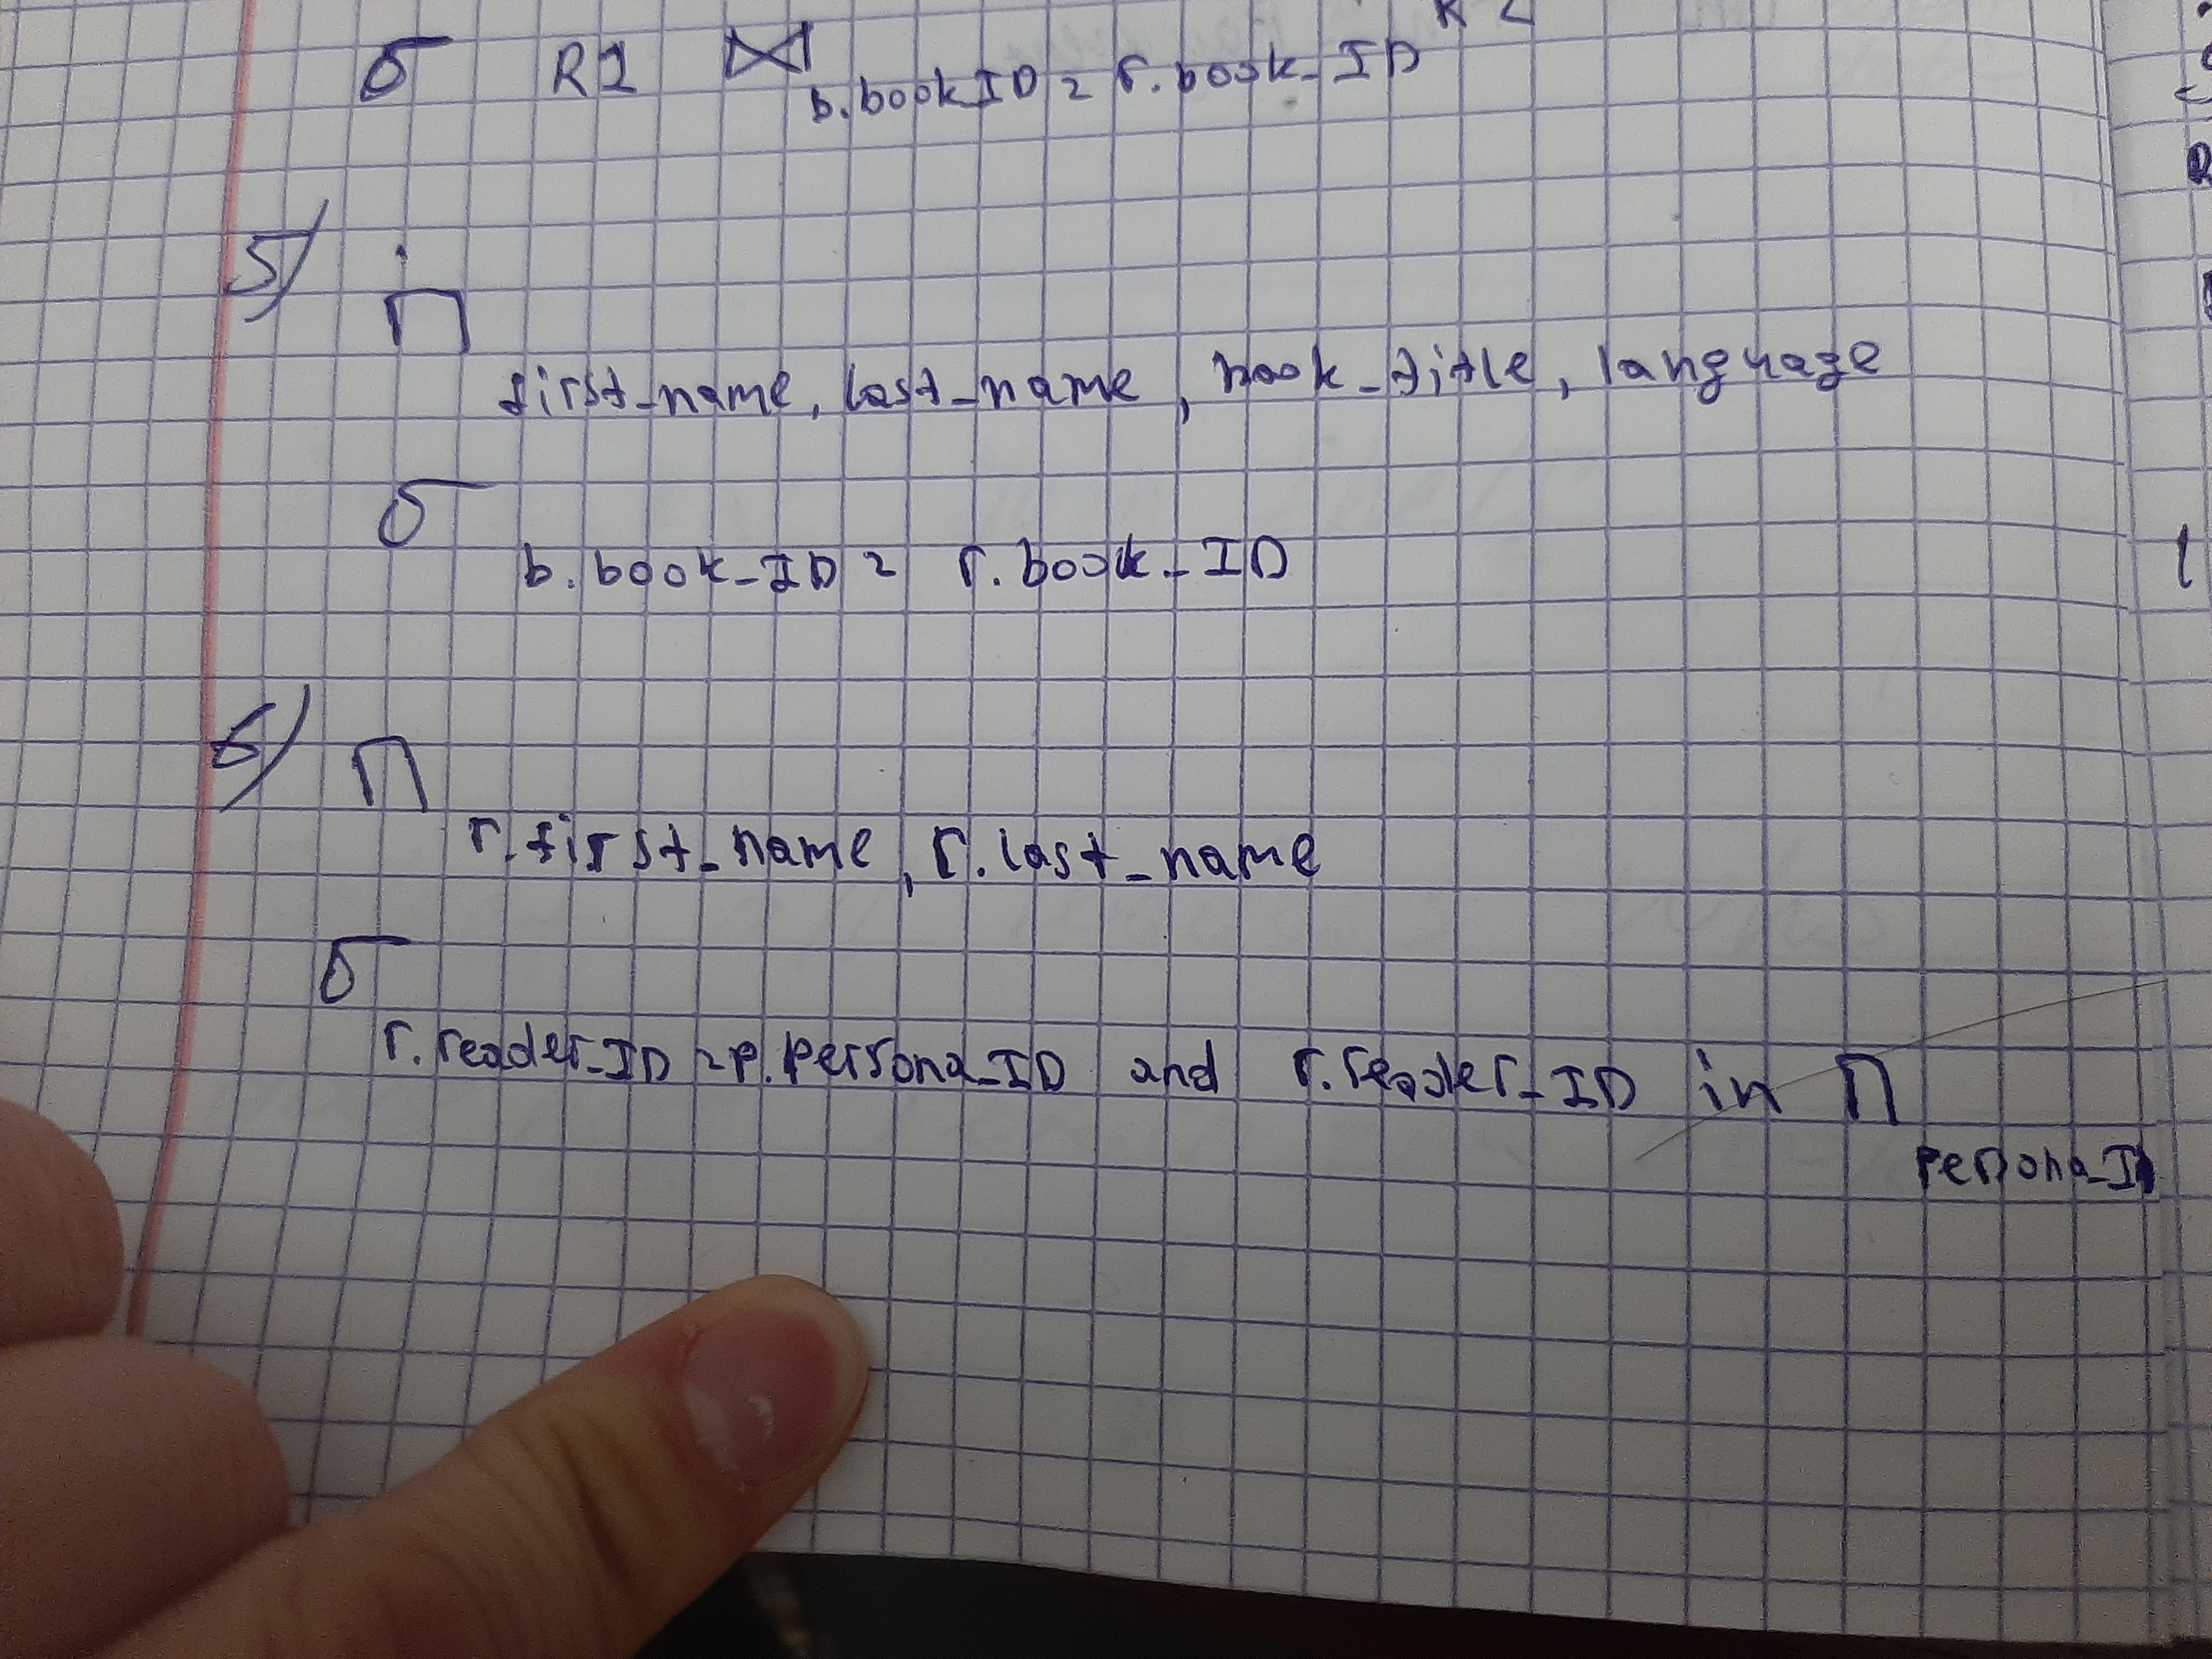 σ R1 ⋈ b.book_ID = r.book_ID
5/ Π first_name, last_name, book_title, language
σ b.book_ID = r.book_ID
6/ Π r.first_name, r.last_name
σ r.reader_ID = p.persona_ID and r.reader_ID in Π persona_ID